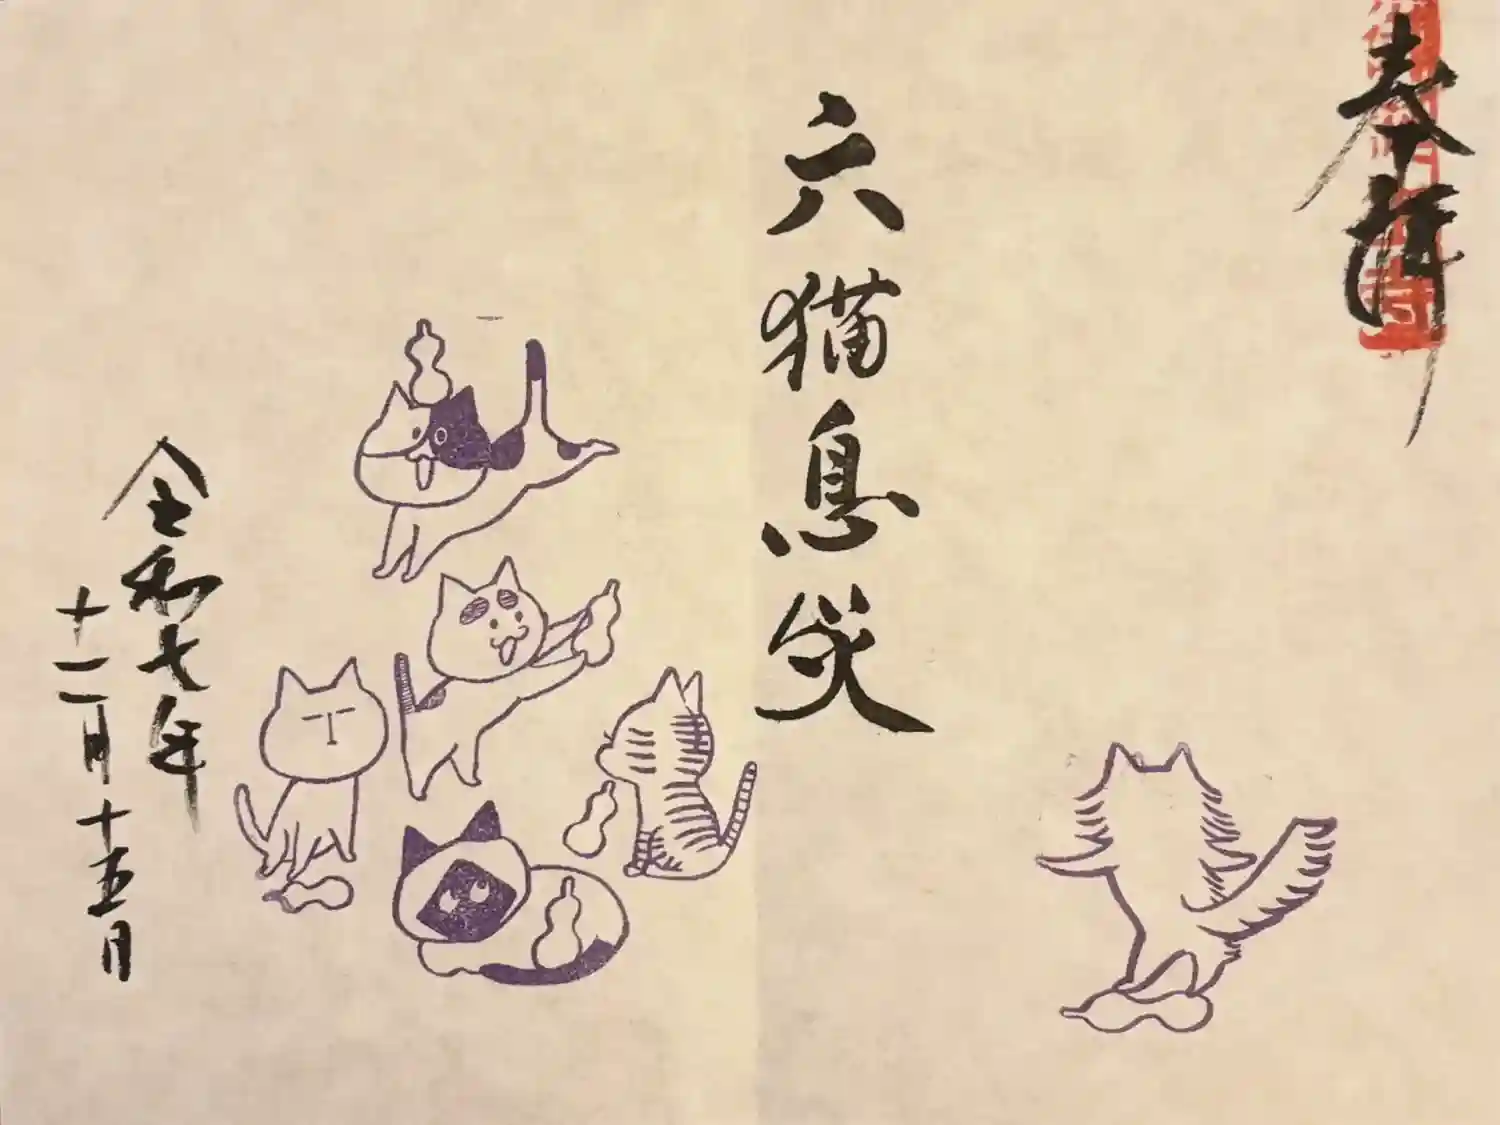 奉拝
六猫息災
令和七年
十一月十五日